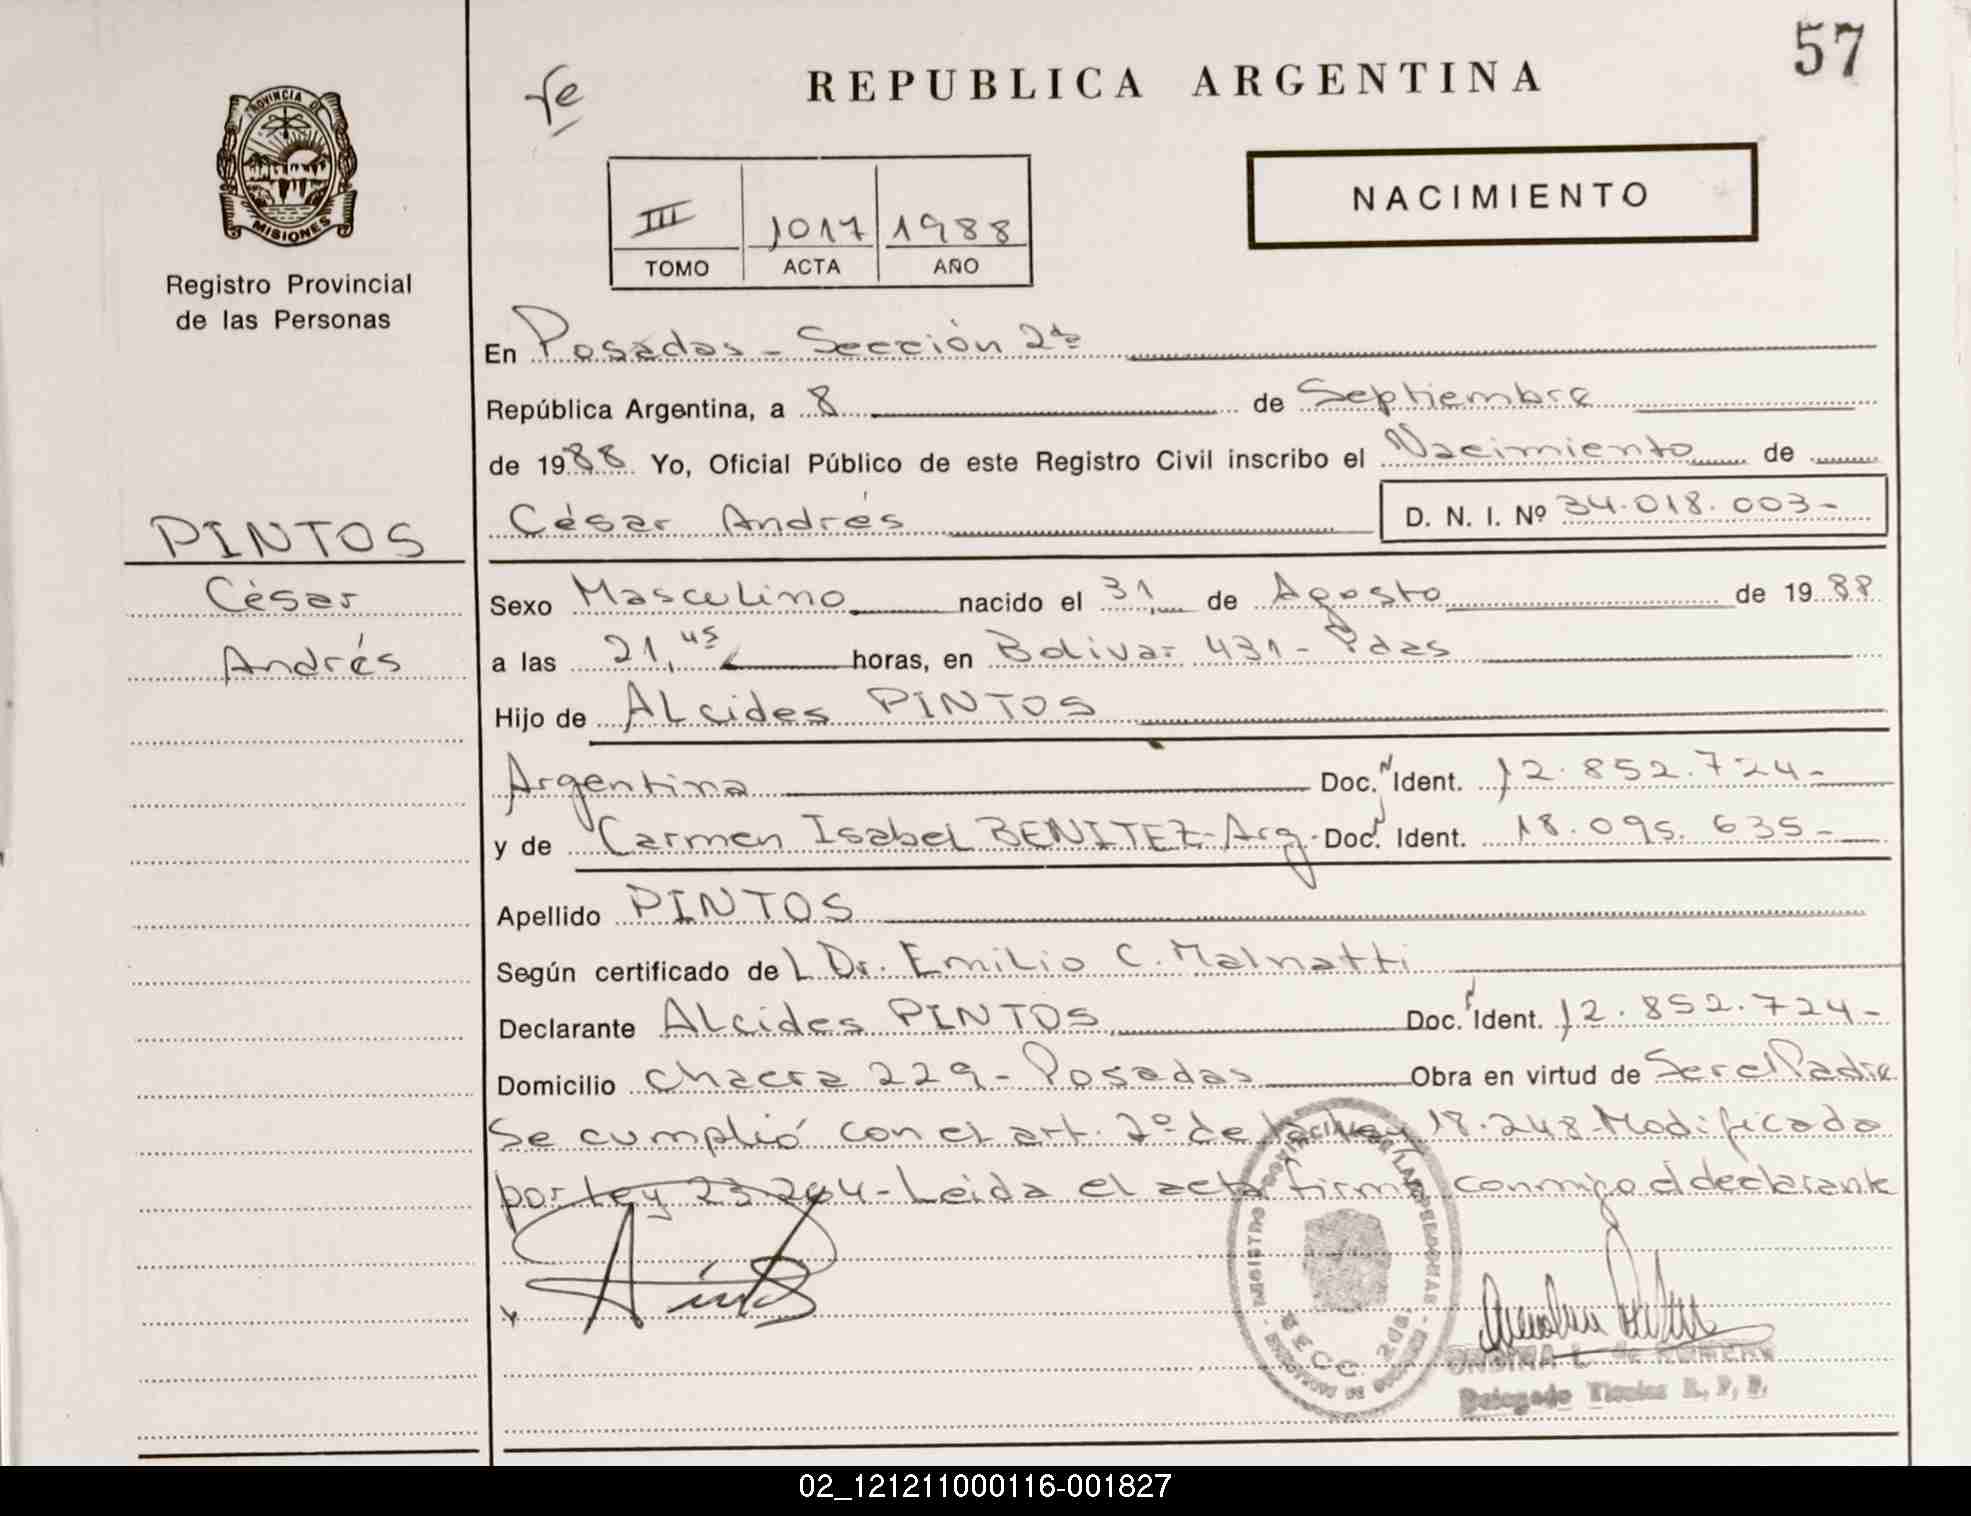 57
fe
REPUBLICA ARGENTINA
PROVINCIA DE
MISIONES
Registro Provincial
de las Personas
III 1017 1988
TOMO ACTA AÑO
NACIMIENTO
En Posadas - Sección 2da
República Argentina, a 8 de Septiembre
de 1988 Yo, Oficial Público de este Registro Civil inscribo el Nacimiento de
César Andrés D. N. I. Nº 34.018.003-
PINTOS
César
Andrés
Sexo Masculino nacido el 31 de Agosto de 1988
a las 21,45 horas, en Bolivar 431 - Pdas
Hijo de ALcides PINTOS
Argentina Doc. N Ident. 12.852.724-
y de Carmen Isabel BENITEZ - Arg. Doc. Ident. 18.095.635-
Apellido PINTOS
Según certificado del Dr. Emilio C. Malnatti
Declarante ALcides PINTOS Doc. Ident. 12.852.724-
Domicilio chacra 229 - Posadas Obra en virtud de Ser el Padre
Se cumplió con el art. 2º de la Ley 18.248 - Modificado
por Ley 23.264 - Leida el acta firma conmigo el declarante
SECC. 2da.
Delegado Titular R. P. P.
02_121211000116-001827